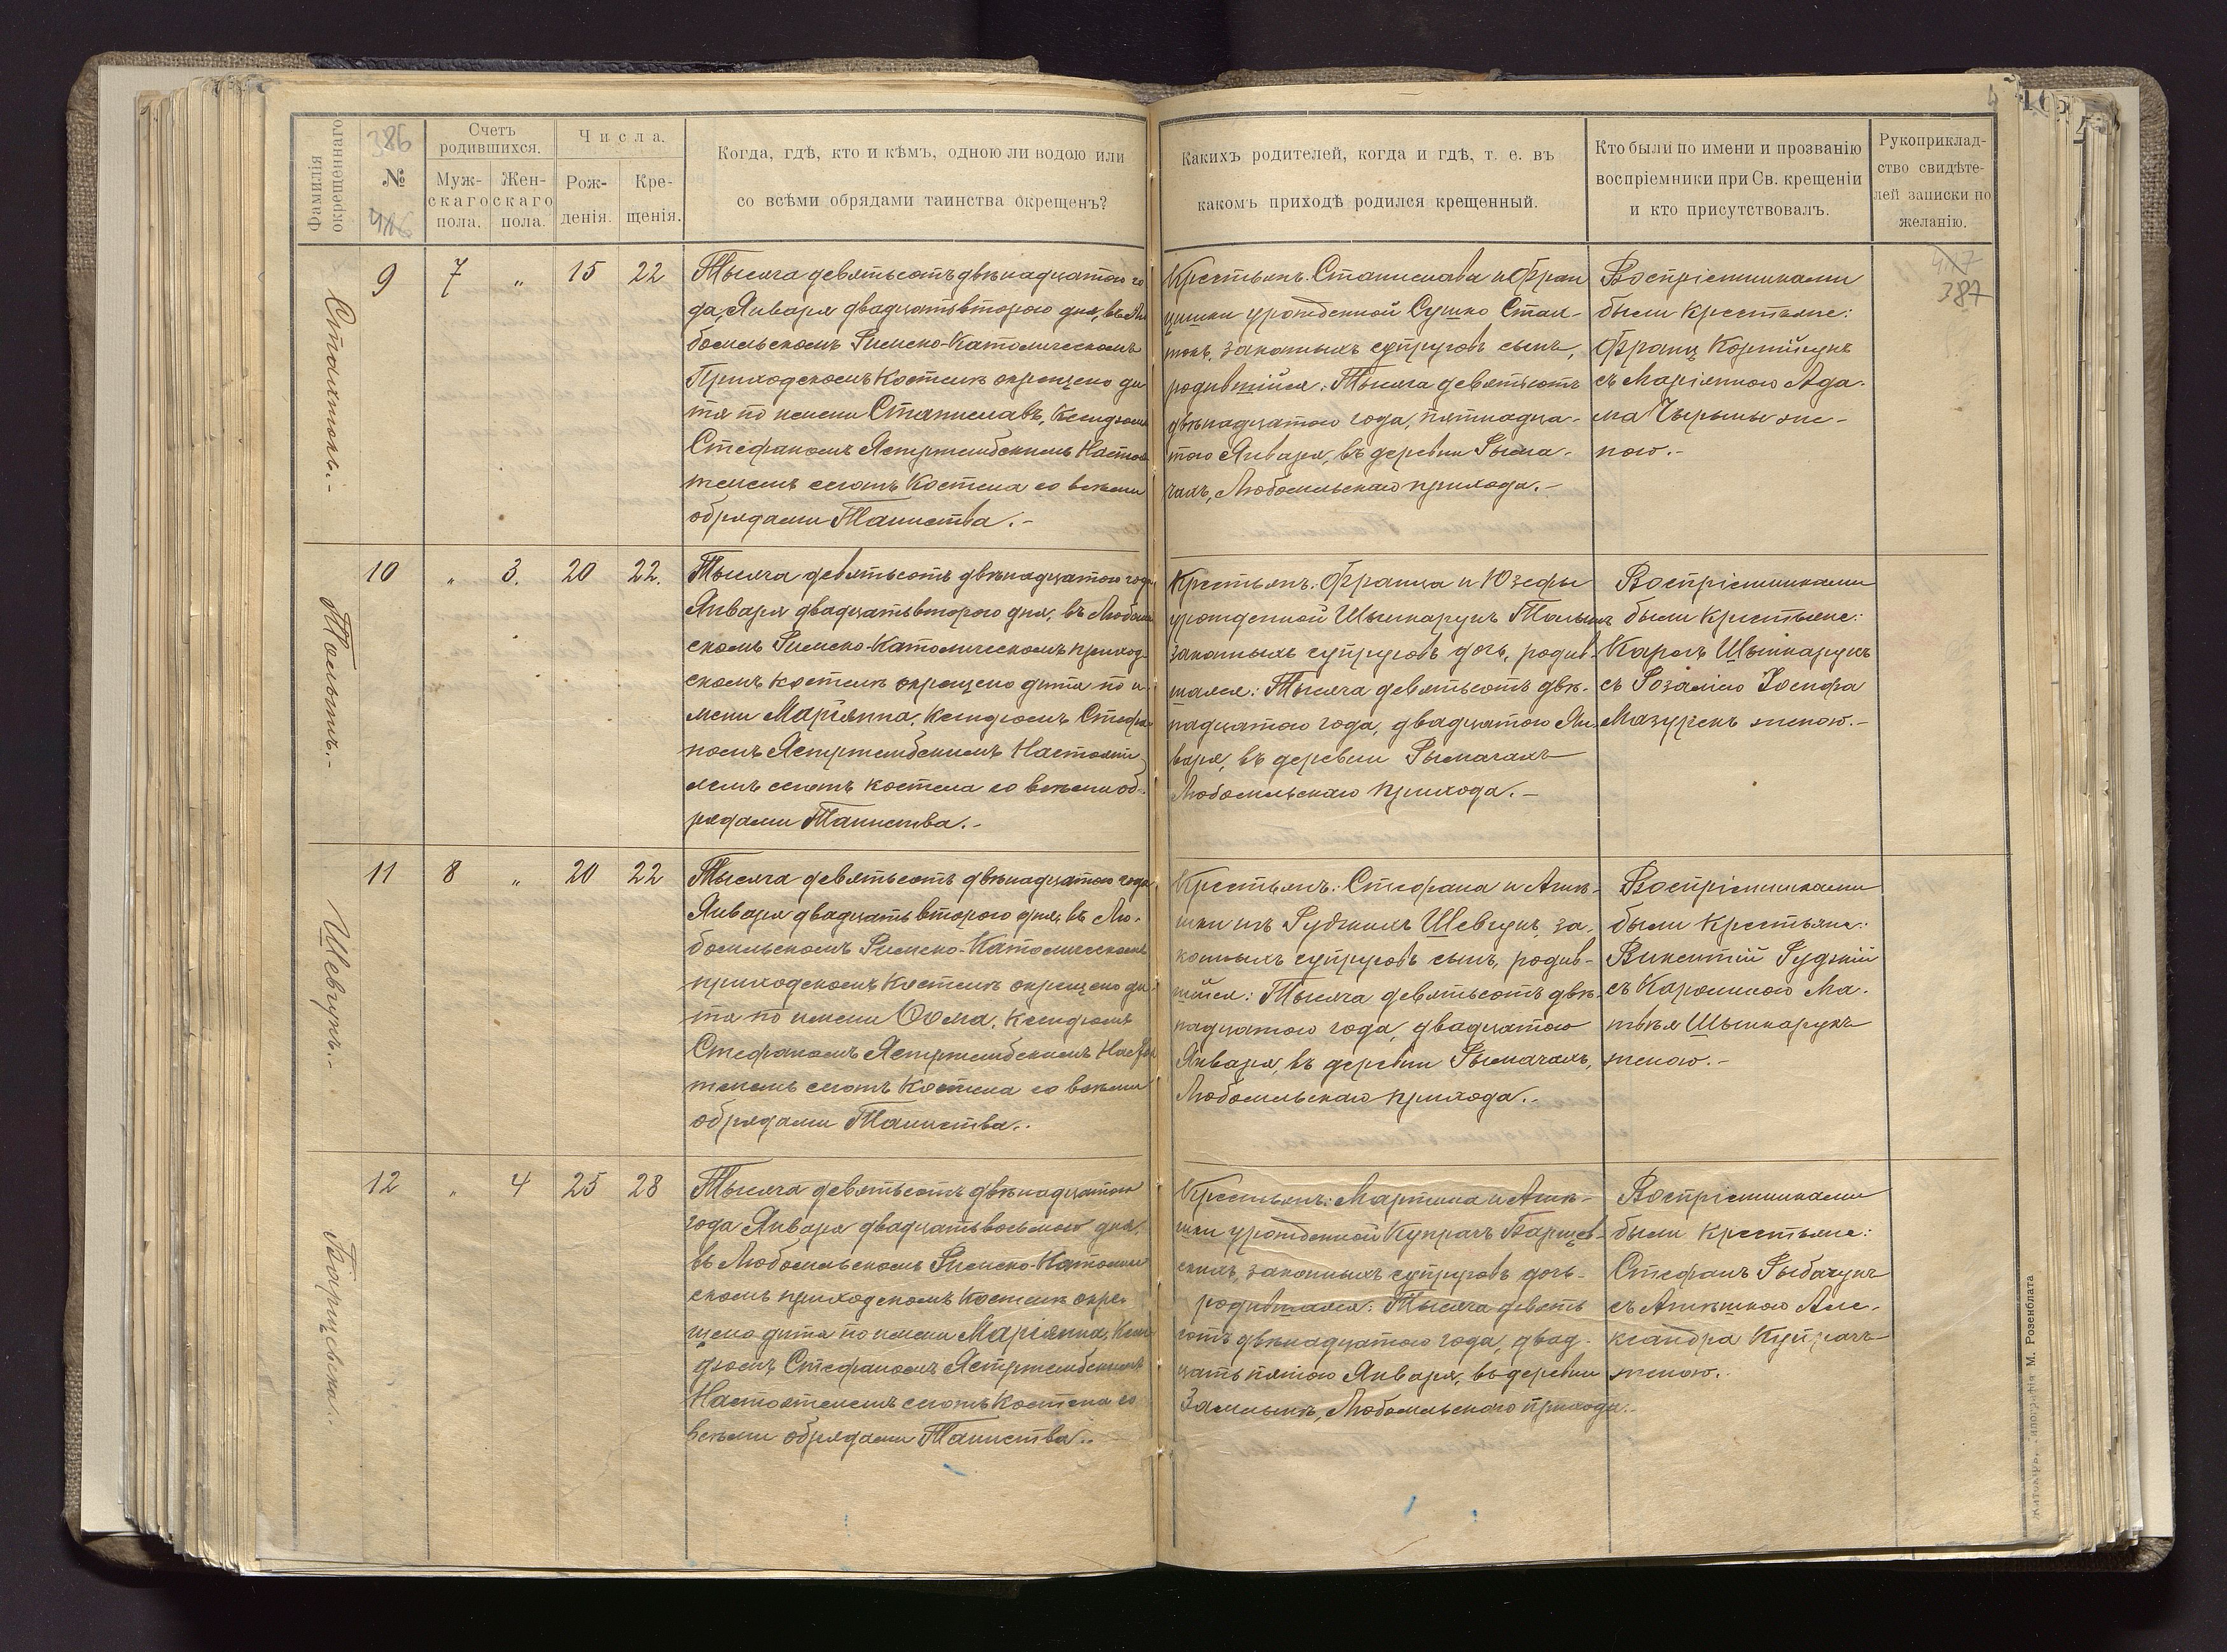 Фамилія окрещеннаго
386
№
Счетъ родившихся.
Муж-
скаго
пола.
Жен-
скаго
пола.
Числа.
Рож-
денія.
Кре-
щенія.
Когда, гдѣ, кто и кѣмъ, одною ли водою или
со всѣми обрядами таинства окрещенъ?
Какихъ родителей, когда и гдѣ, т. е. въ
какомъ приходѣ родился крещенный.
Кто были по имени и прозванію
воспріемники при Св. крещеніи
и кто присутствовалъ.
Рукоприклад-
ство свидѣте-
лей записки по
желанію.
417
387
9
7
"
15
22
Тысяча девятьсотъ двѣнадцатого го
да, Января двадцать второго дня, въ Лю
бомльскомъ Римско-Католическомъ
Приходскомъ Костелѣ окрещено ди
тя по имени Станиславъ, Ксендзомъ
Стефаномъ Ястржембскимъ Настоя
телемъ сего Костела со всѣми
обрядами Таинства.-
Крестьянъ Станислава и Фран
цишки урожденной Сушко
законныхъ супруговъ сынъ,
родившійся: Тысяча девятьсотъ
двѣнадцатого года, пятнадца-
того Января, въ деревни Рыма-
чахъ, Любомльскаго прихода.-
Воспріемниками
были Крестьяне:
Франц
съ Маріянною Ада-
ма же-
ною.-
10
"
3.
20
22.
Тысяча девятьсотъ двѣнадцатого года
Января двадцать второго дня, въ Любомль
скомъ Римско-Католическомъ приход-
скомъ костелѣ окрещено дитя по и-
мени Маріянна, Ксендзомъ Стефа
номъ Ястржембскимъ Настояте
лемъ сего костела со всѣми об-
рядами Таинства.-
Крестьянъ: Франца и Юзефы
урожденной
законныхъ супруговъ дочь, родив-
шаяся: Тысяча девятьсотъ двѣ-
надцатого года, двадцатого Ян-
варя, въ деревни Рымачахъ
Любомльскаго прихода.-
Воспріемниками
были Крестьяне:
Кароль Шышкарукъ
съ Розалією Іосифа
Мазурекъ женою.-
11
8
"
20
22
Шевчукъ.-
Тысяча девятьсотъ двѣнадцатого года
Января двадцать второго дня, въ Лю-
бомльскомъ Римско-Католическомъ
приходскомъ Костелѣ окрещено ди
тя по имени Ѳома, Ксендзомъ
Стефаномъ Ястржембскимъ Настоя
телемъ сего Костела со всѣми
обрядами Таинства..
Крестьянъ: Стефана и Агнѣ-
шки изъ Рудзкихъ Шевчукъ, за-
конныхъ супруговъ сынъ, родив-
шійся: Тысяча девятьсотъ двѣ-
надцатого года, двадцатого
Января, въ деревни Рымачахъ,
Любомльскаго прихода.-
Воспріемниками
были Крестьяне:
Викентій Рудзкій
съ Каролиною Ма-
твѣя Шышкарукъ
женою.-
12
"
4
25
28
Тысяча девятьсотъ двѣнадцатого
года Января двадцать восьмого дня,
въ Любомльскомъ Римско-Католиче
скомъ приходскомъ Костелѣ окре-
щено дитя по имени Маріянна, Ксен
дзомъ Стефаномъ Ястржембскимъ
Настоятелемъ сего Костела со
всѣми обрядами Таинства..
Крестьянъ: Мартина и Агнѣ-
шки урожденной Купрачъ Борщев-
скихъ, законныхъ супруговъ дочь-
родившаяся: Тысяча девять
сотъ двѣнадцатого года, двад-
цать пятого Января, въ деревни
Любомльскаго прихода.-
Воспріемниками
были Крестьяне:
Стефанъ Рыбачукъ
съ Агнѣшкою Але-
ксандра Купрачъ
женою..
М. Розенблата